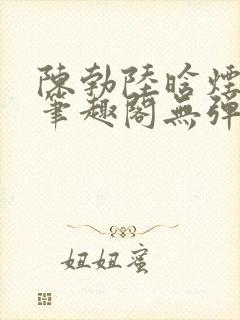 陳勃陸晗煙
筆趣閣無彈
妞妞蜜